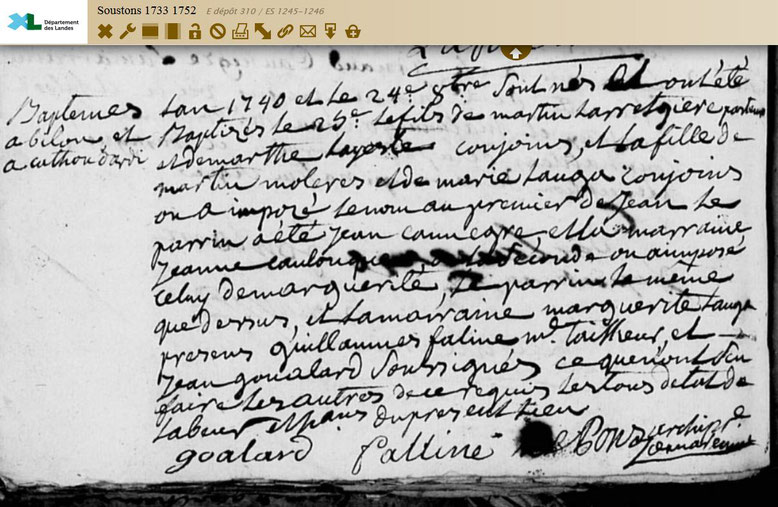 Département
des Landes
Soustons 1733 1752 E dépôt 310 / ES 1245-1246
Baptemes
a bilon et
a cathon darri
Lan 1740 et le 24e 8bre sont nés et ont été
Baptisés le 25e le fils de martin Larregiere
et de marthe Laporte conjoins, et la fille de
martin moleres et de marie tauga conjoins
on a imposé le nom au premier de Jean le
parrin a été Jean caunegre, et la marraine
Jeanne a la seconde on a imposé
celuy de marguerite, le parrin le meme
que dessus, et la marraine marguerite tauga
presens guillaumes faline me. tailleur, et
Jean goualard soussignés ce que n'ont sçu
faire les autres de ce requis les tous de lat de
labeur et du present lieu
goalard falline De Pons archipr.e